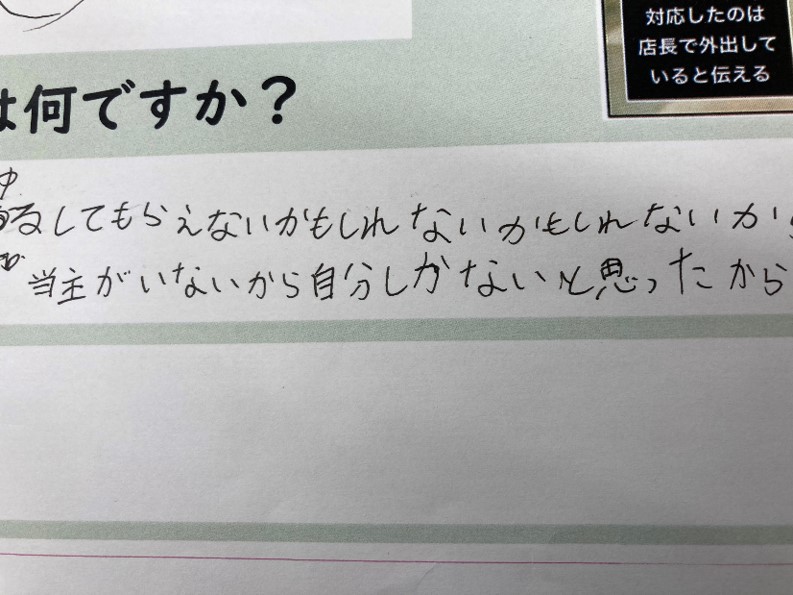 対応したのは
店長で外出して
いると伝える
は何ですか？
るしてもらえないかもしれないかもしれないから
当主がいないから自分しかないと思ったから